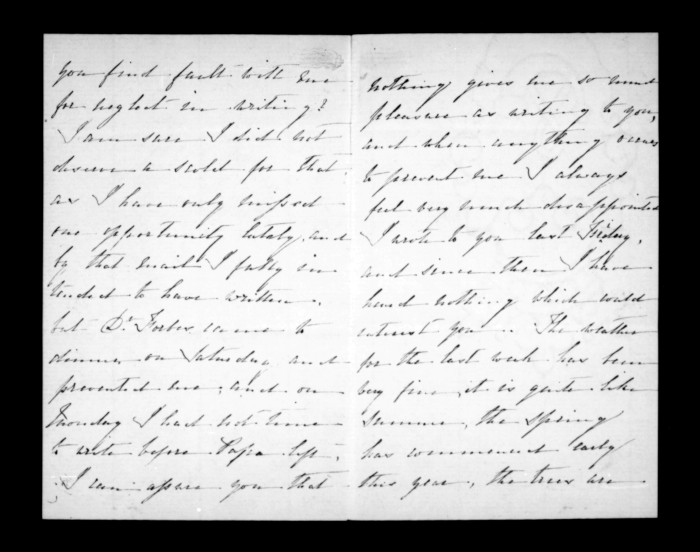 you find fault with me
for neglect in writing?
I am sure I did not
deserve a scold for that,
as I have only missed
one opportunity lately, and
by that mail I fully in
tended to have written,
but Dr Forbes came to
dinner on Saturday and
prevented me, and on
Monday I had not time
to write before Papa left,
I can assure you that
nothing gives me so much
pleasure as writing to you,
and when anything occurs
to prevent me I always
feel very much disappointed
I wrote to you last Friday,
and since then I have
heard nothing which would
interest you. The weather
for the last week has been
very fine, it is quite like
summer, the spring
has commenced early
this year, the trees are